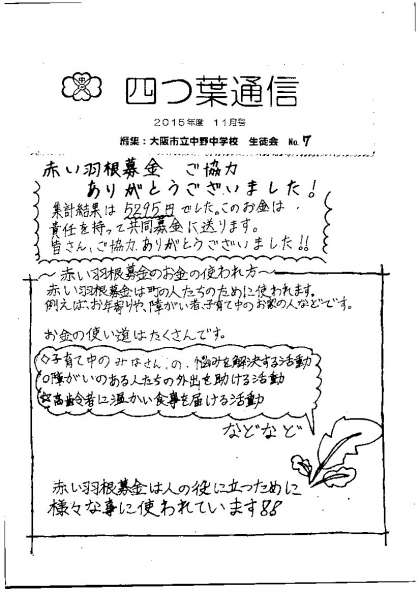 四つ葉通信
2015年度 11月号
編集：大阪市立中野中学校 生徒会 No.7
赤い羽根募金 ご協力
ありがとうございました！
集計結果は5295円でした。このお金は、
責任を持って共同募金に送ります。
皆さん、ご協力ありがとうございました!!
～赤い羽根募金のお金の使われ方～
赤い羽根募金は町の人たちのために使われます。
例えば、お年寄りや、障がい者、子育て中のお家の人などです。
お金の使い道はたくさんです。
◇子育て中のみなさんの、悩みを解決する活動
○障がいのある人たちの外出を助ける活動
☆高齢者に温かい食事を届ける活動
などなど
赤い羽根募金は人の役に立つために
様々な事に使われています!!